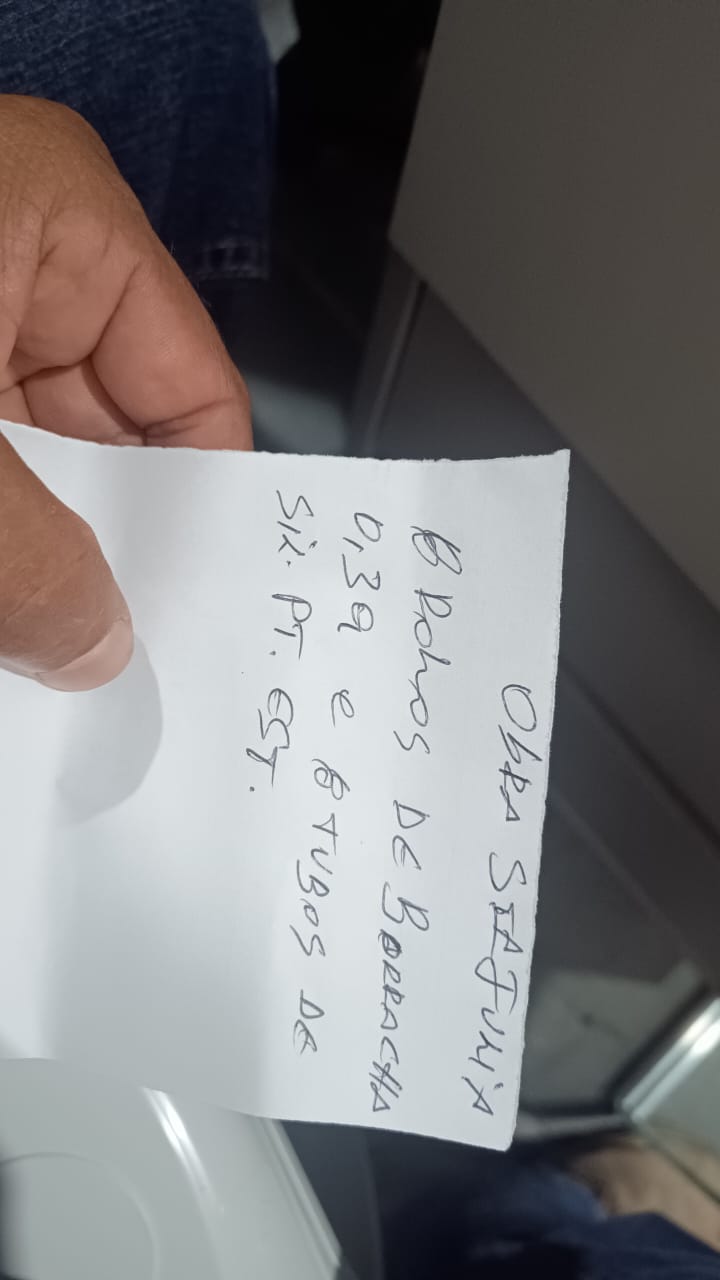 Obra STA Julia
8 Rolos de Borracha
0,39 e 8 Tubos de
Sil. PT. EST.